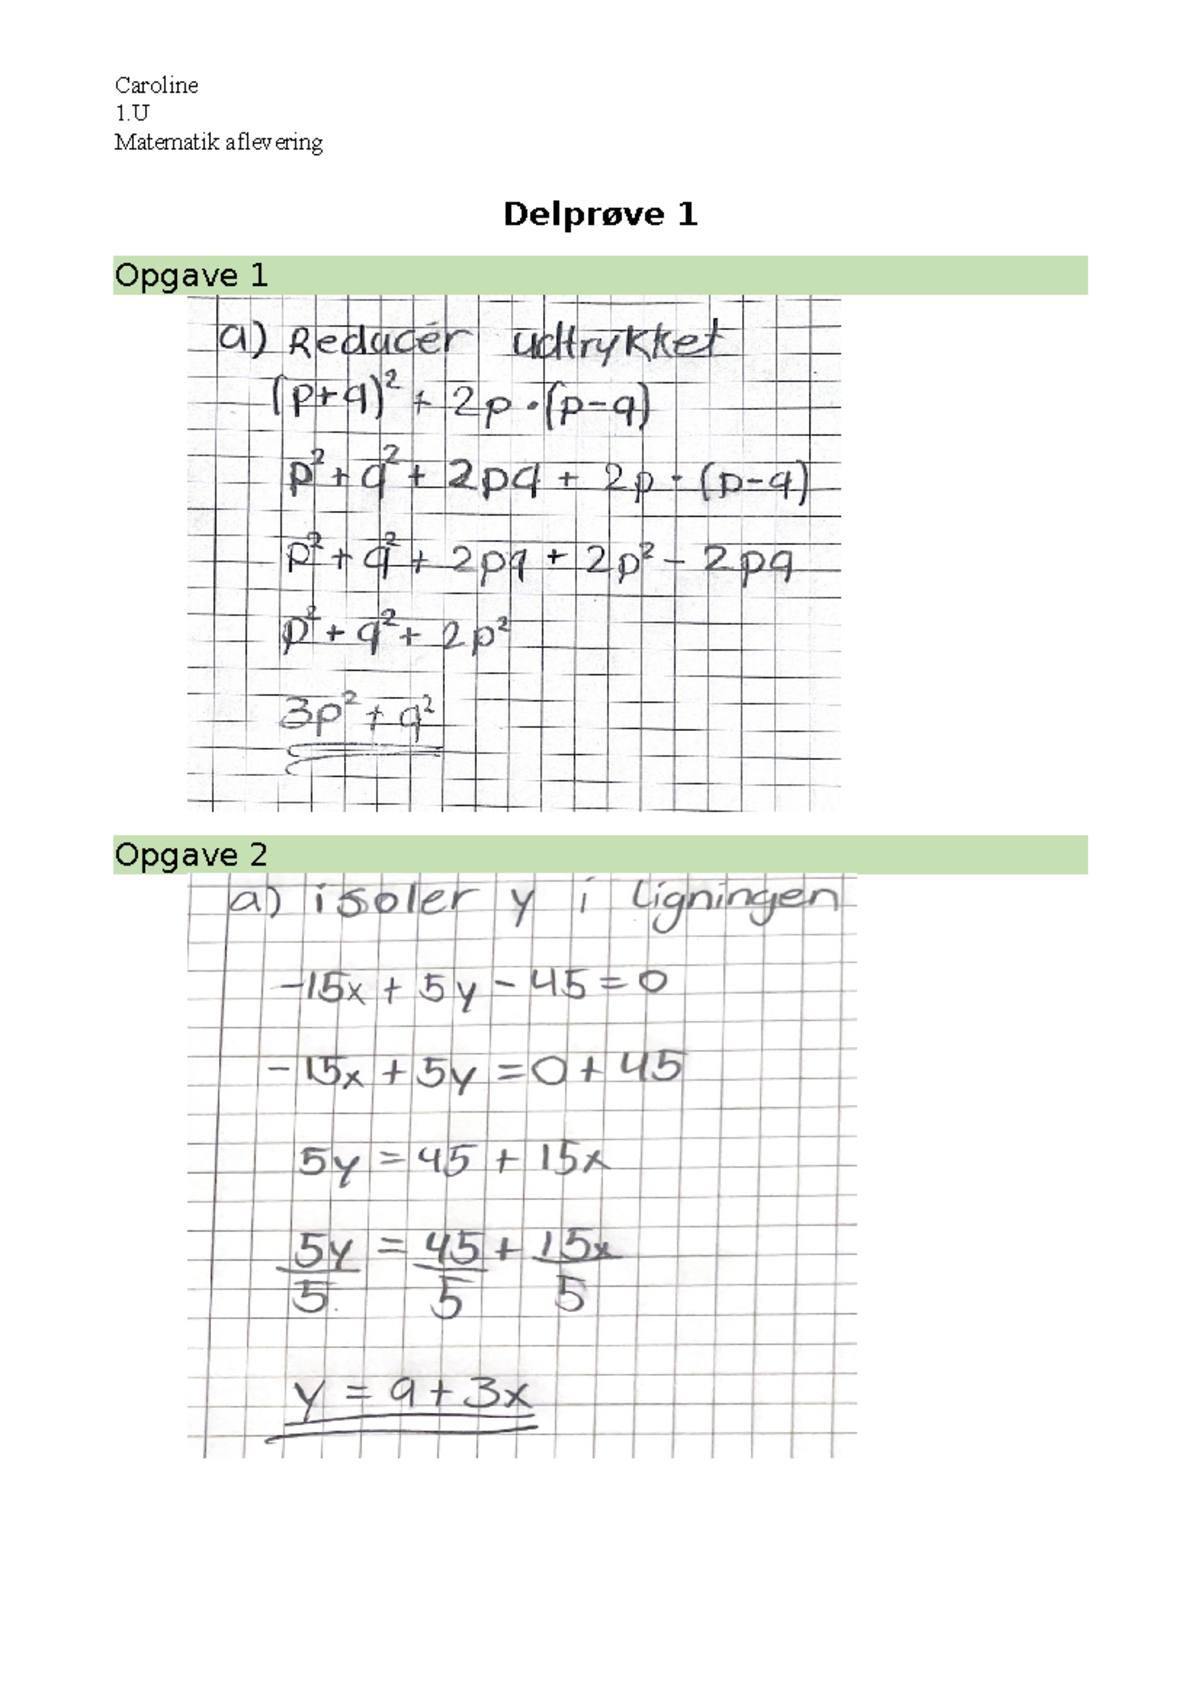 Caroline
1.U
Matematik aflevering
Delprøve 1
Opgave 1
a) Reducér udtrykket
(p+q)² + 2p·(p-q)
p² + q² + 2pq + 2p · (p-q)
p² + q² + 2pq + 2p² - 2pq
p² + q² + 2p²
3p² + q²
Opgave 2
a) isoler y i ligningen
-15x + 5y - 45 = 0
-15x + 5y = 0 + 45
5y = 45 + 15x
5y/5 = 45/5 + 15x/5
y = 9 + 3x